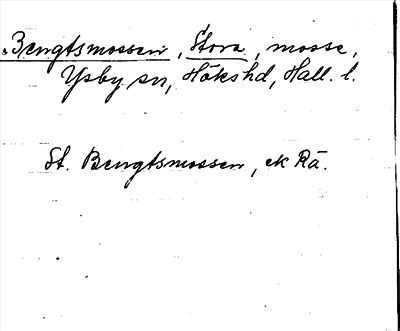 Bengtsmossen, Stora, mosse,
Ysby sn, Hökshd, Hall. l.
St. Bengtsmossen, ek Rä.